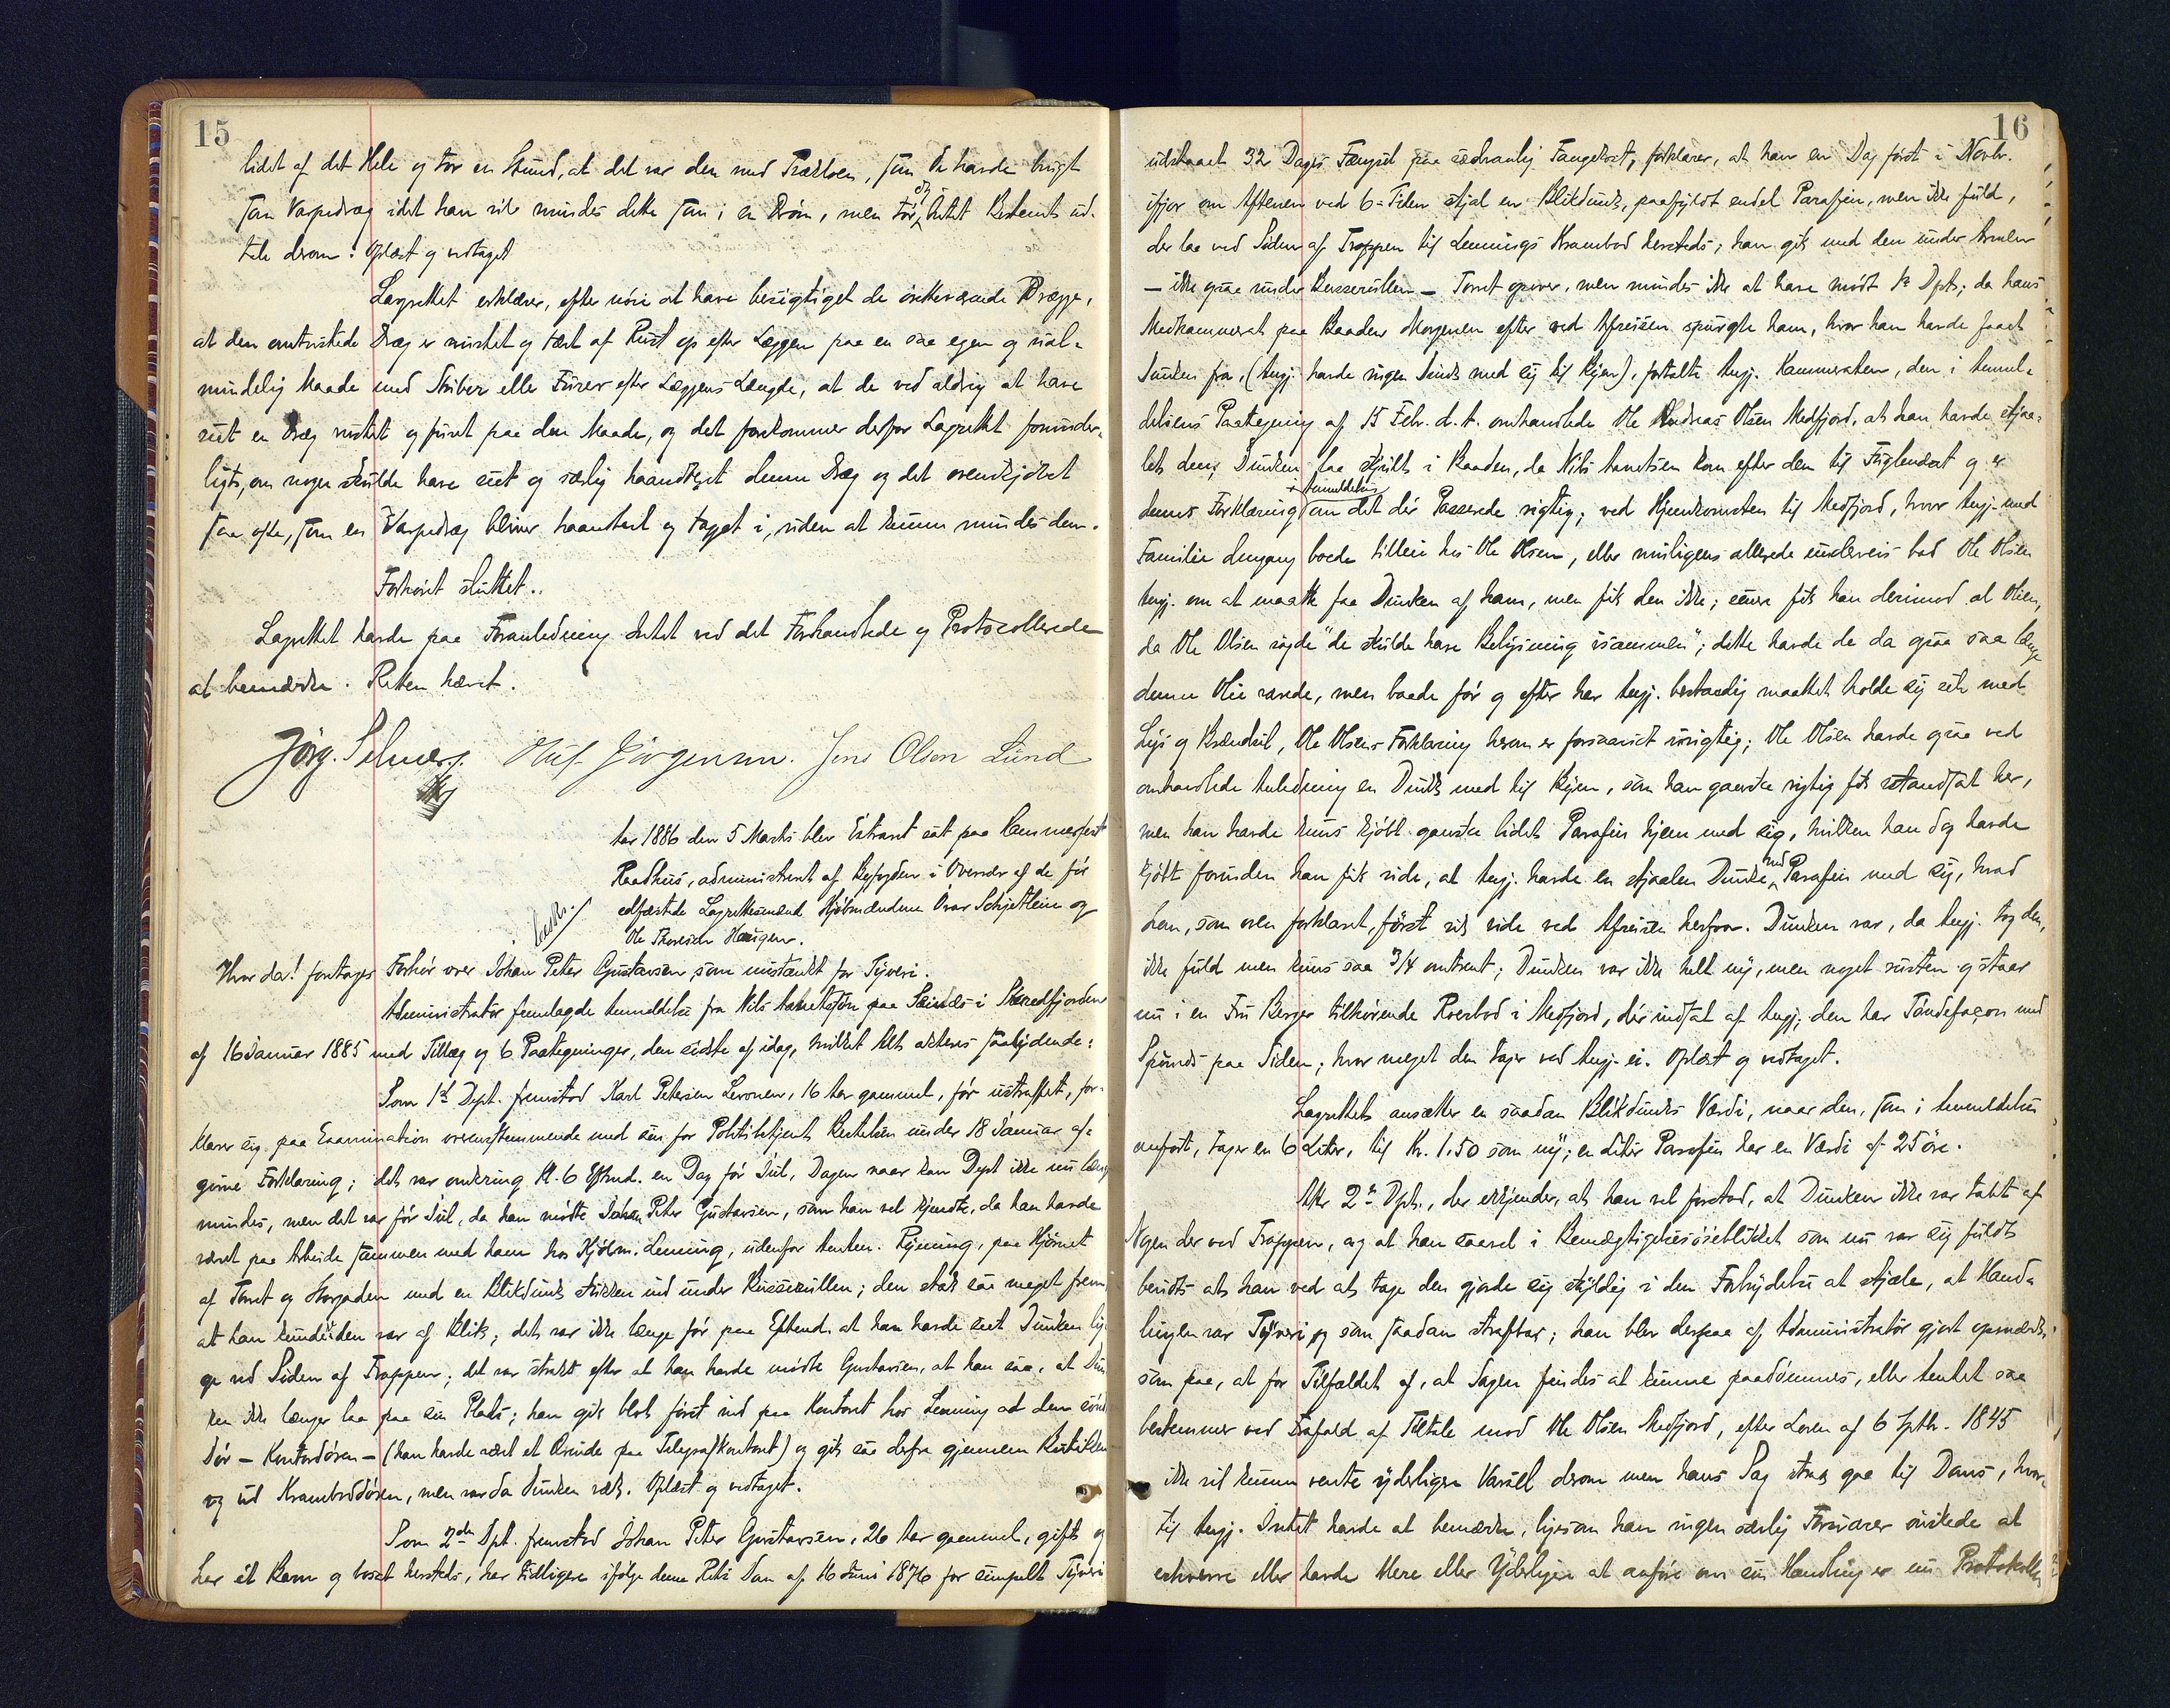 15
lidet af det Hele og tror en Stund, at det var den med Trækloen, som de havde brugt
som Varpedræg idet han vil mindes dette som i en Drøm, men tør dog Intet Bestemt ud-
tale derom. Oplæst og vedtaget
Lagrettet erklærer, efter nøie at have besigtiget de iretteværende Drægge,
at den omtvistede Dræg er rustet og tært af Rust op efter Læggen paa en saa egen og ual-
mindelig Maade med Striber eller Furer efter Læggens Længde, at de ved aldrig at have
seet en Dræg rustet og furet paa den Maade, og det forekommer derfor Lagrettet forunder-
ligt, om nogen skulde have seet og særlig haandteret denne Dræg og det ovenikjøbet
saa ofte, som en Varpedræg bliver haanteret og taget i, uden at kunne mindes den.
Forhøret sluttet..
Lagrettet havde paa Foranledning Intet ved det Forhandlede og Protocollerede
at bemærke. Retten hævet.
Jørg. Selmer. Oluf Jørgensen. Jens Olsen Lund
Aar 1886 den 5 Marts blev Extraret sat paa Hammerfest
Raadhus, administreret af Byfogden i Overvær af de før
edfæstede Lagrettesmænd Kjøbmændene Ovar Schjetlein og
Ole Thoresen Haugen.
Hvor da! foretages Forhør over Johan Peter Gustavsen som mistænkt for Tyveri.
Administrator fremlagde Anmeldelse fra Nils
af 16 Januar 1885 med Tillæg og 6 Paategninger, den sidste af idag, hvilket Alt akteres saalydende:
Som 1ste Dept. fremstod Karl Petersen Levonen, 16 Aar gammel, før ustraffet, for-
klarer sig paa Examination overensstemmende med sin for Politibetjent Bertelsen under 18 Januar af-
givne Forklaring; det var omkring Kl. 6 Eftmd. en Dag før Jul, Dagen naar kan Dept ikke nu længer
mindes, men det var før Jul, da han mødte Johan Peter Gustavsen, som han vel kjendte, da han havde
været paa Arbeide sammen med ham hos Kjøbm. Lenning, udenfor paa Hjørnet
af Torvet og Storgaden med en Blikdunk stukken ind under Busserullen; den stak saa meget frem,
at han kunde se den var af Blik; det var ikke længe før paa Eftmd. at han havde seet Dunken lig-
ge ved Siden af Trappen; det var strakt efter at han havde mødte Gustavsen, at han saa, at Dun-
ken ikke længer laa paa sin Plads; han gik blot først ind paa Kontoret hos Lenning ad den
Dør — Kontordøren — (han havde været et Ærinde paa Telegrafkontoret) og gik saa derfra gjennem Butikken
og ud Kramboddøren, men var da Dunken væk. Oplæst og vedtaget.
Som 2den Dpt. fremstod Johan Peter Gustavsen, 26 Aar gammel, gift og
har et Barn og bosat hersteds, har tidligere ifølge denne Rets Dom af 16 Juni 1876 for simpelt Tyveri
16
udstaaet 32 Dages Fængsel paa sædvanlig Fangekost, forklarer, at han en Dag først i Novbr.
ifjor om Aftenen ved 6-Tiden stjal en Blikdunk, paafyldt endel Parafin, men ikke fuld,
der laa ved Siden af Trappen til Lennings Krambod hersteds; han gik med den under Armen
— ikke ogsaa under Busserullen — Torvet opover, men mindes ikke at have mødt 1ste Dpt; da hans
Medkammerat paa Baaden Morgenen efter ved Afreisen spurgte ham, hvor han havde faaet
Dunken fra, (Angj. havde ingen Dunk med sig til Byen), fortalte Angj. Kammeraten, den i Anmel-
delsens Paategning af 15 Febr. d. A. omhandlede Ole Andreas Olsen Medfjord, at han havde stjaa-
let den; Dunken laa skjult i Baaden, da Nils kom efter den til Fuglenæs og er
dennes Forklaring i Anmeldelsen om det dér Passerede rigtig; ved Hjemkomsten til Medfjord, hvor Angj. med
Familie dengang boede tilleie hos Ole Olsen, eller muligens allerede underveis bad Ole Olsen
Angj. om at maatte faa Dunken af ham, men fik den ikke; senere fik han derimod al Olien,
da Ole Olsen sagde "de skulde have Belysning isammen"; dette havde de da ogsaa saa længe
denne Olie varede, men baade før og efter har Angj. bestandig maattet holde sig selv med
Lys og Brændsel, Ole Olsens Forklaring herom er forsaavidt urigtig; Ole Olsen havde ogsaa ved
omhandlede Anledning en Dunk med til Byen, som han ganske rigtig fik istandsat her,
men han havde kuns kjøbt ganske lidet Parafin hjem med sig, hvilken han dog havde
kjøbt forinden han fik vide, at Angj. havde en stjaalen Dunk med Parafin med sig, hvad
han, som oven forklaret, først fik vide ved Afreisen herfra. Dunken var, da Angj. tog den,
ikke fuld men kuns saa 3/4 omtrent; Dunken var ikke helt ny, men noget rusten og staar
nu i en Fru Berger tilhørende Roerbod i Medfjord, dér indsat af Angj; den har Tøndefaçon med
Spunds paa Siden; hvor meget den tager ved Angj. ei. Oplæst og vedtaget.
Lagrettets ansætter en saadan Blikdunks Værdi, naar den, som i Anmeldelsen
anført, tager en 6 Liter, til Kr. 1.50 som ny; en Liter Parafin har en Værdi af 25 øre.
Atter 2n Dpt., der erkjender, at han vel forstod, at Dunken ikke var tabt af
Nogen der ved Trappen, og at han saavel i Bemægtigelsesøieblikket som nu var sig fuldt
bevidst at han ved at tage den gjorde sig skyldig i den Forbrydelse at stjæle, at Hand-
lingen var Tyveri og som saadan strafbar; han blev derpaa af Administrator gjort opmærk-
som paa, at for Tilfældet af, at Sagen findes at kunne paadømmes, eller Amtet saa
bestemmer ved Frafald af Tiltale mod Ole Olsen Medfjord, efter Loven af 6 Sptbr. 1845
ikke vil kunne vente yderligere Varsel derom men hans Sag strax gaa til Doms, hvor-
til Angj. Intet havde at bemærke, ligesom han ingen særlig Forsvarer ønskede at
erhverve eller havde Mere eller Yderligere at anføre om sin Handling er nu Protokollen